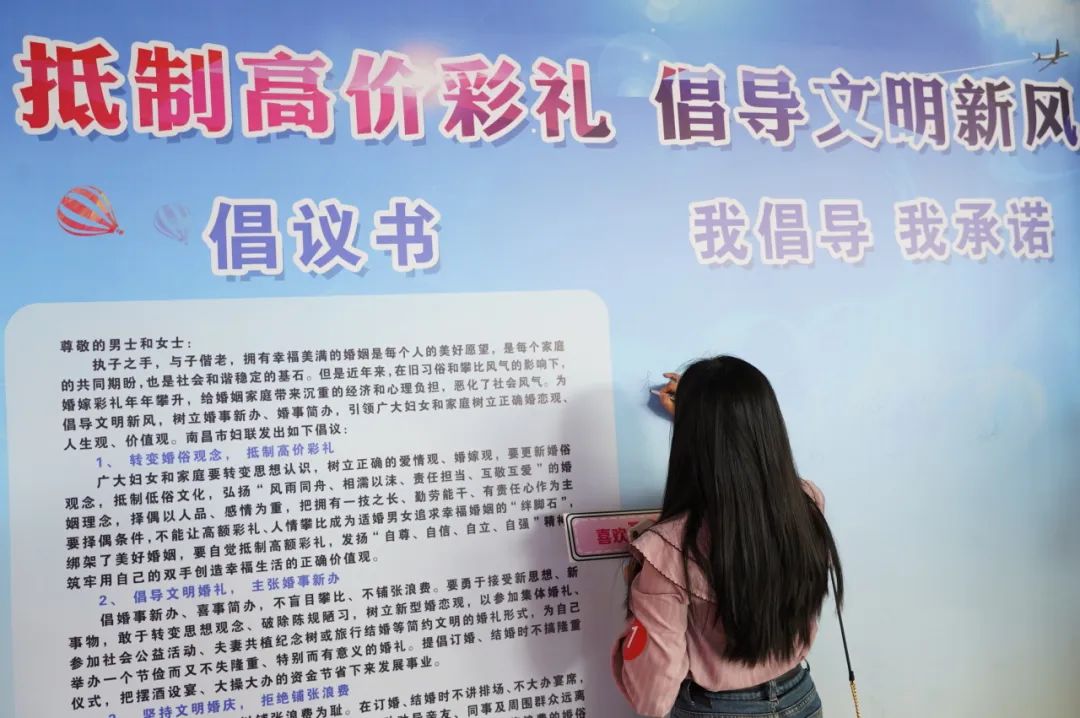 抵制高价彩礼 倡导文明新风
倡议书
我倡导 我承诺
尊敬的男士和女士：
执子之手，与子偕老，拥有幸福美满的婚姻是每个人的美好愿望，是每个家庭
的共同期盼，也是社会和谐稳定的基石。但是近年来，在旧习俗和攀比风气的影响下，
婚嫁彩礼年年攀升，给婚姻家庭带来沉重的经济和心理负担，恶化了社会风气。为
倡导文明新风，树立婚事新办、婚事简办，引领广大妇女和家庭树立正确婚恋观、
人生观、价值观。南昌市妇联发出如下倡议：
1、 转变婚俗观念， 抵制高价彩礼
广大妇女和家庭要转变思想认识，树立正确的爱情观、婚嫁观，要更新婚俗
观念，抵制低俗文化，弘扬“风雨同舟、相濡以沫、责任担当、互敬互爱”的婚
姻理念，择偶以人品、感情为重，把拥有一技之长、勤劳能干、有责任心作为主
要择偶条件，不能让高额彩礼、人情攀比成为适婚男女追求幸福婚姻的“绊脚石”，
绑架了美好婚姻，要自觉抵制高额彩礼，发扬“自尊、自信、自立、自强”精神
筑牢用自己的双手创造幸福生活的正确价值观。
2、 倡导文明婚礼， 主张婚事新办
倡婚事新办、喜事简办，不盲目攀比、不铺张浪费。要勇于接受新思想、新
事物，敢于转变思想观念、破除陈规陋习，树立新型婚恋观，以参加集体婚礼、
参加社会公益活动、夫妻共植纪念树或旅行结婚等简约文明的婚礼形式，为自己
举办一个节俭而又不失隆重、特别而有意义的婚礼。提倡订婚、结婚时不搞隆重
仪式，把摆酒设宴、大操大办的资金节省下来发展事业。
3、 坚持文明婚庆， 拒绝铺张浪费
铺张浪费为耻。在订婚、结婚时不讲排场、不大办宴席，
导亲友、同事及周围群众远离
的婚俗
喜欢
1